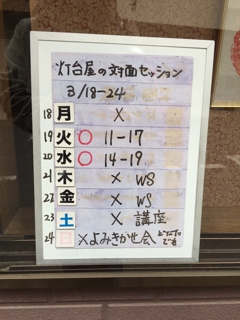 灯台屋の対面セッション
3/18-24
18 月 ×
19 火 ○ 11-17
20 水 ○ 14-19
21 木 × WS
22 金 × WS
23 土 × 講座
24 日 ×よみきかせ会 どなたでも